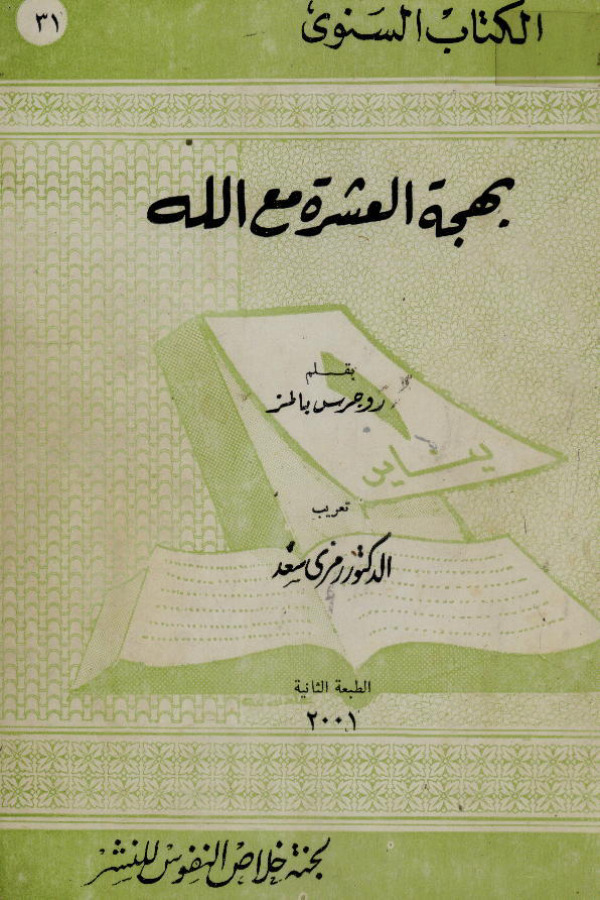 ٣١
الكتاب السنوى
بهجة العشرة مع الله
بقلم
روجرس بالمز
١
يناير
تعريب
الدكتور رمزى سعد
الطبعة الثانية
٢٠٠١
لجنة خلاص النفوس للنشر